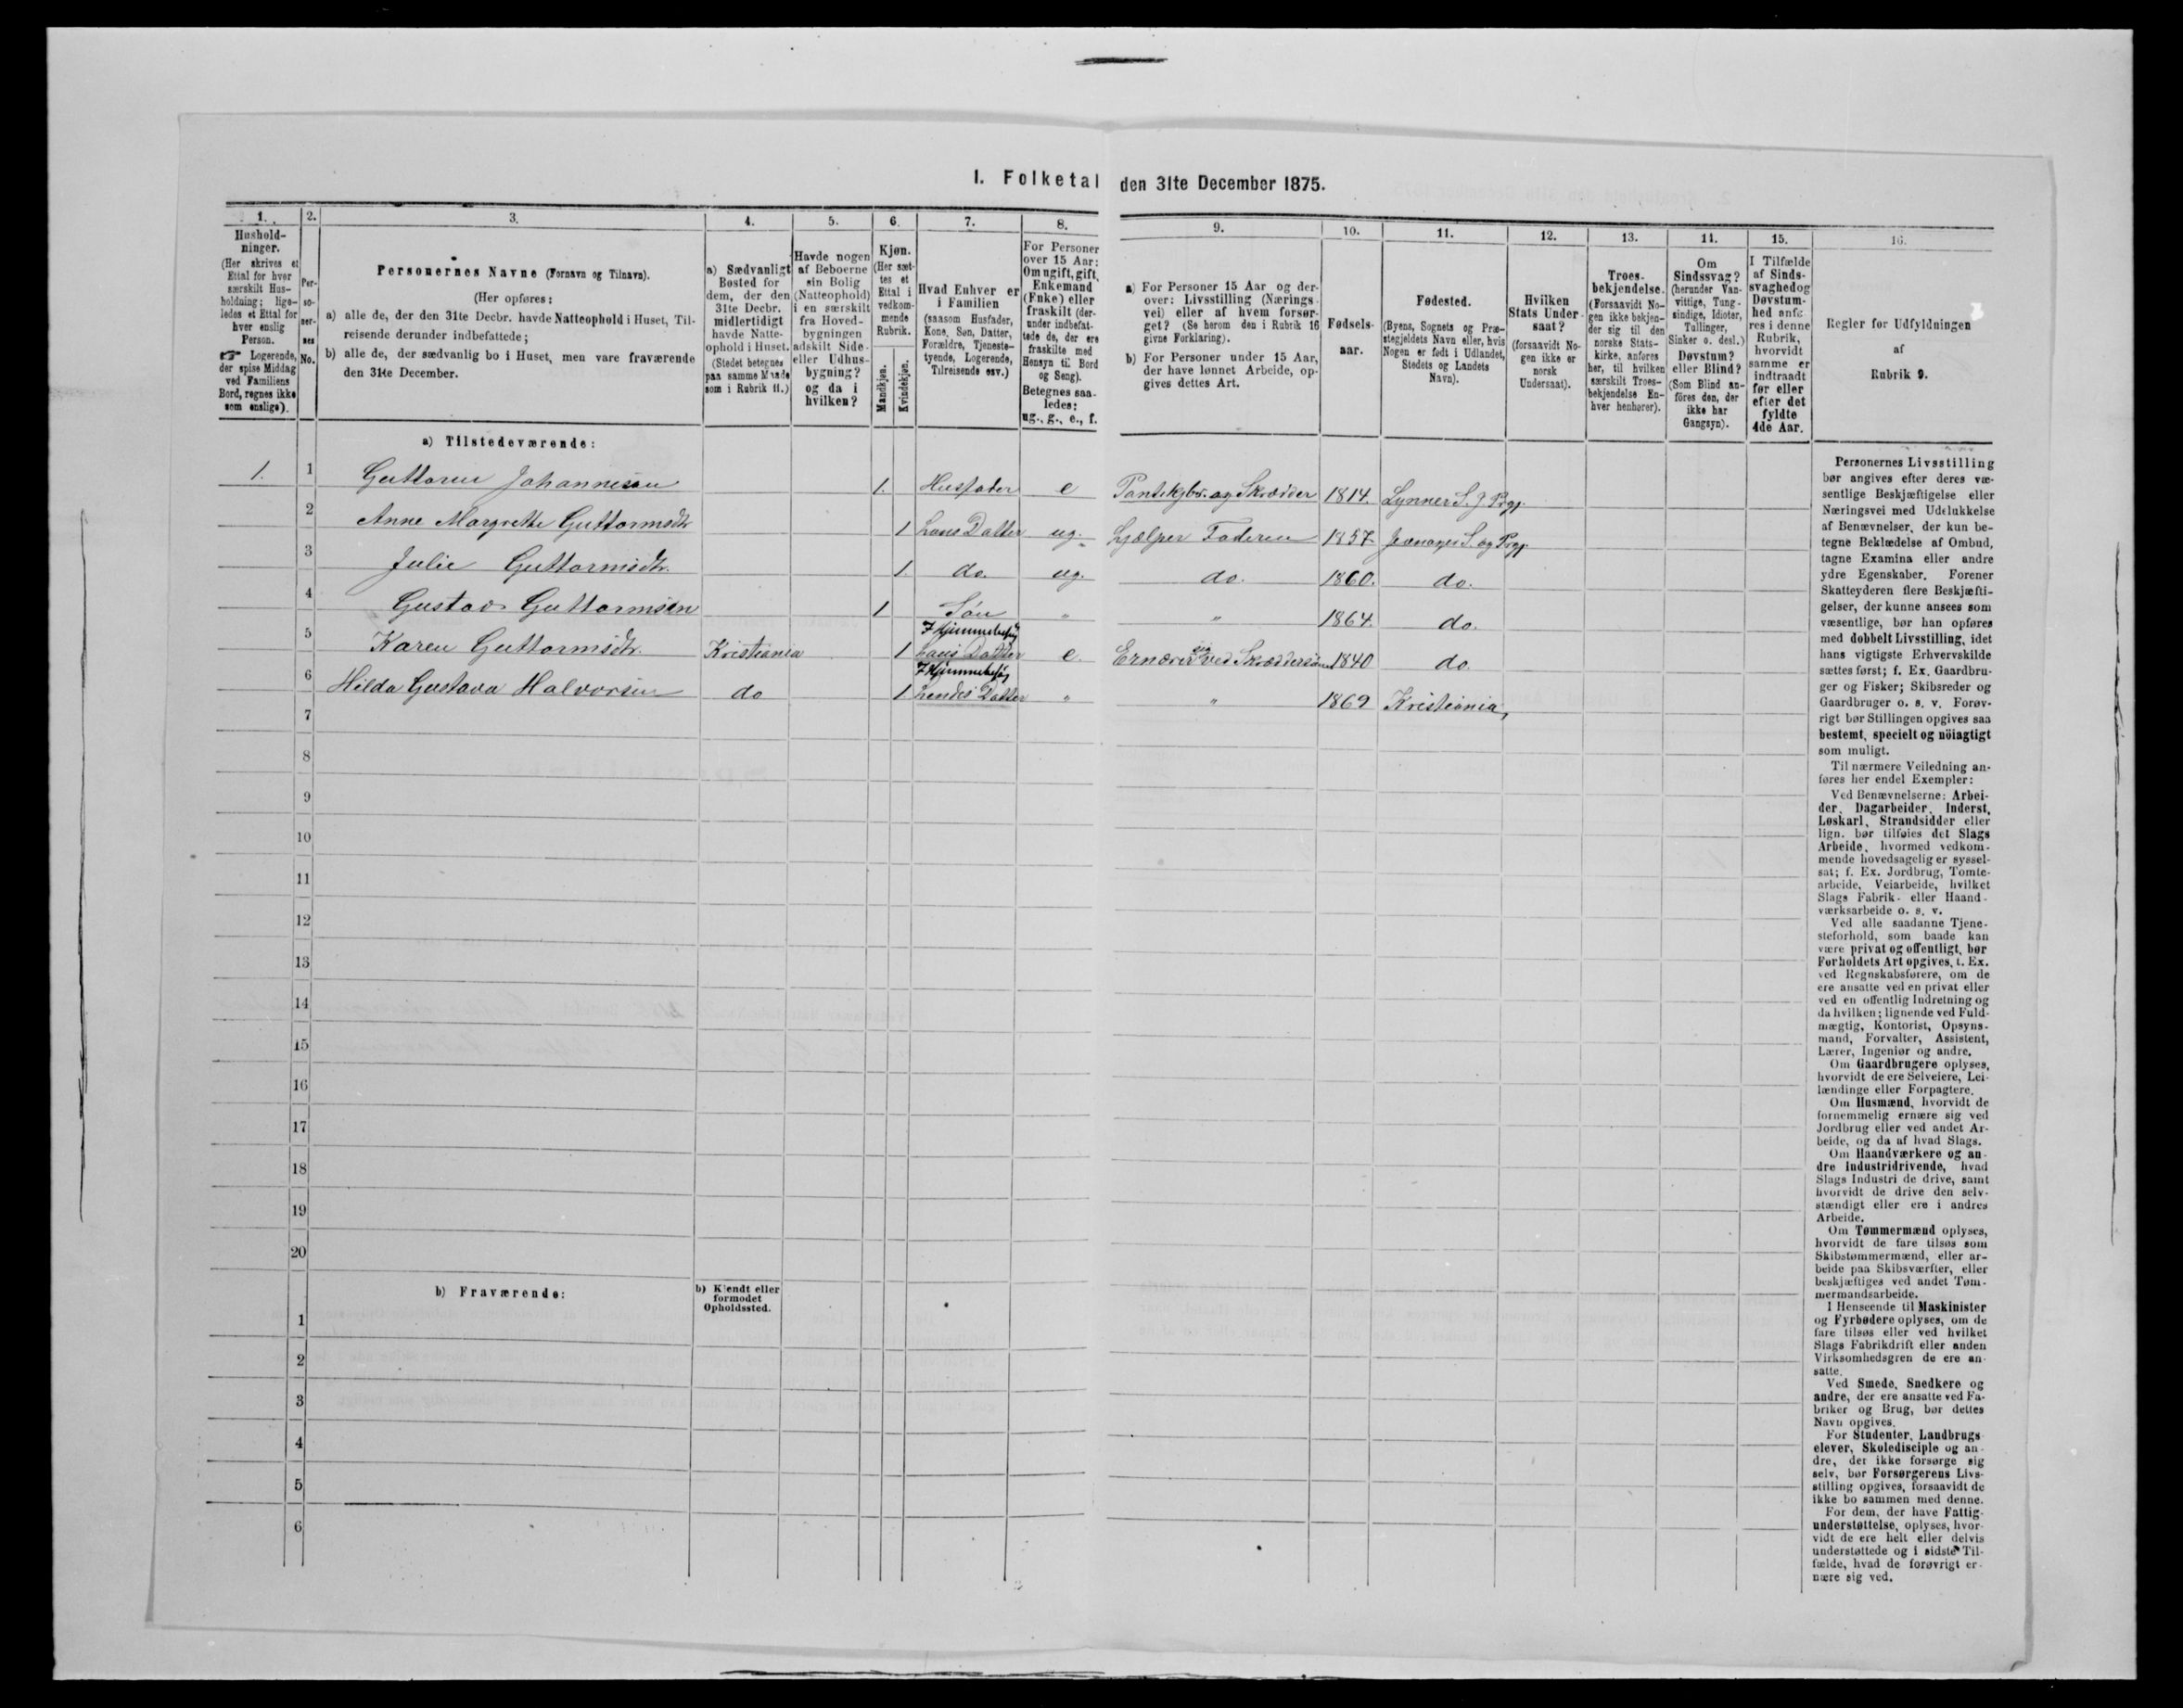 I. Folketal den 31te December 1875.
1.
Hushold-
ninger.
(Her skrives et
Ettal for hver
særskilt Hus-
holdning; lige-
ledes et Ettal for
hver enslig
Person.
☞ Logerende,
der spise Middag
ved Familiens
Bord, regnes ikke
som enslige).
2.
Per-
so-
ner-
nes
No.
3.
Personernes Navne (Fornavn og Tilnavn).
(Her opføres:
a) alle de, der den 31te Decbr. havde Natteophold i Huset, Til-
reisende derunder indbefattede;
b) alle de, der sædvanlig bo i Huset, men vare fraværende
den 31te December.
4.
a) Sædvanligt
Bosted for
dem, der den
31te Decbr.
midlertidigt
havde Natte-
ophold i Huset.
(Stedet betegnes
paa samme Maade
som i Rubrik 11.)
5.
Havde nogen
af Beboerne
sin Bolig
(Natteophold)
i en særskilt
fra Hoved-
bygningen
adskilt Side-
eller Udhus-
bygning?
og da i
hvilken?
6.
Kjøn.
(Her sæt-
tes et
Ettal i
vedkom-
mende
Rubrik.
Mandkjøn.
Kvindekjøn.
7.
Hvad Enhver er
i Familien
(saasom Husfader,
Kone, Søn, Datter,
Forældre, Tjeneste-
tyende, Logerende,
Tilreisende osv.)
8.
For Personer
over 15 Aar:
Om ugift, gift,
Enkemand
(Enke) eller
fraskilt (der-
under indbefat-
tede de, der ere
fraskilte med
Hensyn til Bord
og Seng).
Betegnes saa-
ledes:
ug., g., e., f.
9.
a) For Personer 15 Aar og der-
over: Livsstilling (Nærings-
vei) eller af hvem forsør-
get? (Se herom den i Rubrik 16
givne Forklaring).
b) For Personer under 15 Aar,
der have lønnet Arbeide, op-
gives dettes Art.
10.
Fødsels-
aar.
11.
Fødested.
(Byens, Sognets og Præ-
stegjeldets Navn eller, hvis
Nogen er født i Udlandet,
Stedets og Landets
Navn).
12.
Hvilken
Stats Under-
saat?
(forsaavidt No-
gen ikke er
norsk
Undersaat).
13.
Troes-
bekjendelse.
(Forsaavidt No-
gen ikke bekjen-
der sig til den
norske Stats-
kirke, anføres
her, til hvilken
særskilt Troes-
bekjendelse En-
hver henhører).
14.
Om
Sindssvag?
(herunder Van-
vittige, Tung-
sindige, Idioter,
Tullinger,
Sinker o. desl.)
Døvstum?
eller Blind?
(Som Blind an-
föres den, der
ikke har
Gangsyn).
15.
I Tilfælde
af Sinds-
svaghed og
Døvstum-
hed anfø-
res i denne
Rubrik,
hvorvidt
samme er
indtraadt
før eller
efter det
fyldte
4de Aar.
16.
Regler for Udfyldningen
af
Rubrik 9.
a) Tilstedeværende:
1. 1 Guttorm Johannesen 1. Husfader e Pantekgbr. og Skrædder 1814. Lynner S. J. Prgj.
2 Anne Margrethe Guttormsdtr 1 hans Datter ug. hjælper Faderen 1857 Jevnager S. og Prgj.
3 Julie Guttormsdtr. 1. do. ug. do. 1860. do.
4 Gustav Guttormsen 1 Søn " " 1864. do.
5 Karen Guttormsdtr. Kristiania 1 I Hjemmebesøg hans Datter e. Ernærer sig ved Skræddersöm 1840 do.
6 Hilda Gustava Halvorsen do 1 I Hjemmebesøg hendes Datter " " 1869 Kristiania,
7
8
9
10
11
12
13
14
15
16
17
18
19
20
b) Fraværende:
b) Kjendt eller
formodet
Opholdssted.
1
2
3
4
5
6
Personernes Livsstilling
bør angives efter deres væ-
sentlige Beskjæftigelse eller
Næringsvei med Udelukkelse
af Benævnelser, der kun be-
tegne Beklædelse af Ombud,
tagne Examina eller andre
ydre Egenskaber. Forener
Skatteyderen flere Beskjæfti-
gelser, der kunne ansees som
væsentlige, bør han opføres
med dobbelt Livsstilling, idet
hans vigtigste Erhvervskilde
sættes først; f. Ex. Gaardbru-
ger og Fisker; Skibsreder og
Gaardbruger o. s. v. Forøv-
rigt bør Stillingen opgives saa
bestemt, specielt og nöiagtigt
som muligt.
Til nærmere Veiledning an-
føres her endel Exempler:
Ved Benævnelserne: Arbei-
der, Dagarbeider, Inderst,
Løskarl, Strandsidder eller
lign. bør tilføies det Slags
Arbeide, hvormed vedkom-
mende hovedsagelig er syssel-
sat; f. Ex. Jordbrug, Tomte-
arbeide, Veiarbeide, hvilket
Slags Fabrik- eller Haand-
værksarbeide o. s. v.
Ved alle saadanne Tjene-
steforhold, som baade kan
være privat og offentligt, bør
Forholdets Art opgives, f. Ex.
ved Regnskabsførere, om de
ere ansatte ved en privat eller
ved en offentlig Indretning og
da hvilken; lignende ved Fuld-
mægtig, Kontorist, Opsyns-
mand, Forvalter, Assistent,
Lærer, Ingeniør og andre.
Om Gaardbrugere oplyses,
hvorvidt de ere Selveiere, Lei-
lændinge eller Forpagtere.
Om Husmænd, hvorvidt de
fornemmelig ernære sig ved
Jordbrug eller ved andet Ar-
beide, og da af hvad Slags.
Om Haandværkere og an-
dre Industridrivende, hvad
Slags Industri de drive, samt
hvorvidt de drive den selv-
stændigt eller ere i andres
Arbeide.
Om Tømmermænd oplyses,
hvorvidt de fare tilsøs som
Skibstømmermænd, eller ar-
beide paa Skibsværfter, eller
beskjæftiges ved andet Tøm-
mermandsarbeide.
I Henseende til Maskinister
og Fyrbødere oplyses, om de
fare tilsøs eller ved hvilket
Slags Fabrikdrift eller anden
Virksomhedsgren de ere an-
satte.
Ved Smede, Snedkere og
andre, der ere ansatte ved Fa-
briker og Brug, bør dettes
Navn opgives.
For Studenter, Landbrugs-
elever, Skoledisciple og an-
dre, der ikke forsørge sig
selv, bør Forsørgerens Livs-
stilling opgives, forsaavidt de
ikke bo sammen med denne.
For dem, der have Fattig-
understøttelse, oplyses, hvor-
vidt de ere helt eller delvis
understøttede og i sidste Til-
fælde, hvad de forøvrigt er-
nære sig ved.